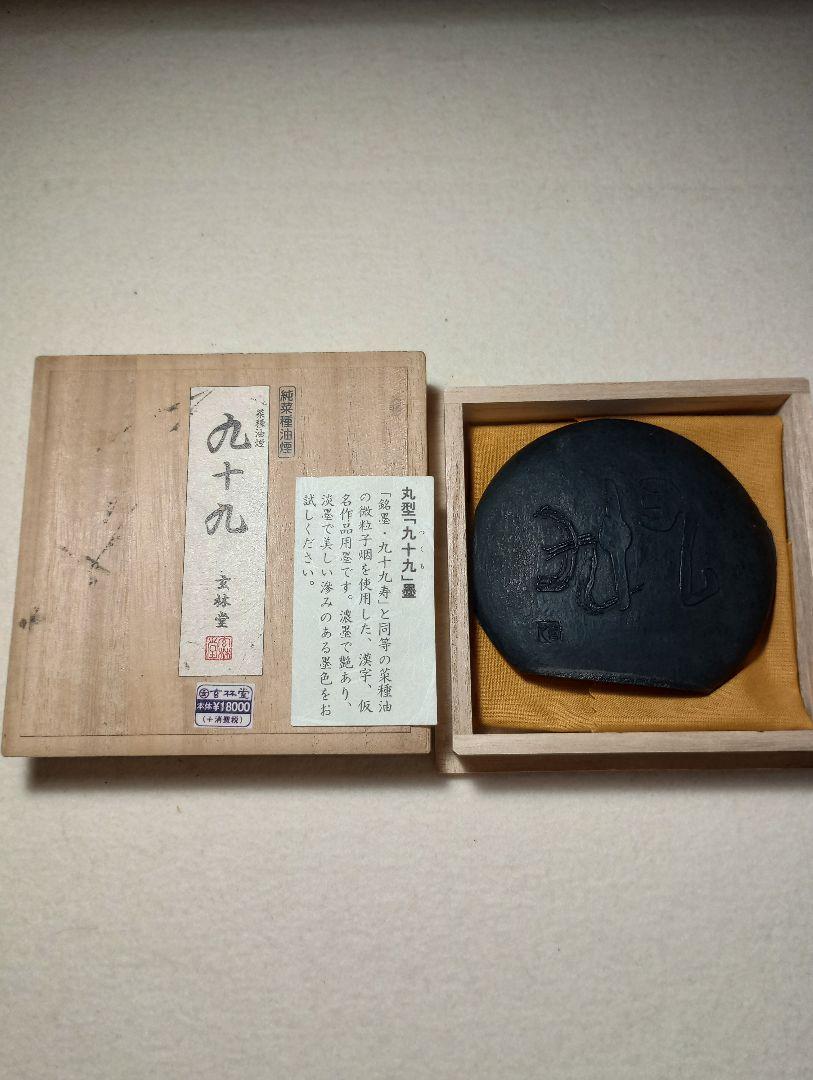 純菜種油煙
菜種油煙
九十九
玄林堂
玄林堂
本体¥18000
(+消費税)
丸型「九十九」墨
つくも
「銘墨・九十九寿」と同等の菜種油
の微粒子烟を使用した、漢字、仮
名作品用墨です。濃墨で艶あり、
淡墨で美しい滲みのある墨色をお
試しください。